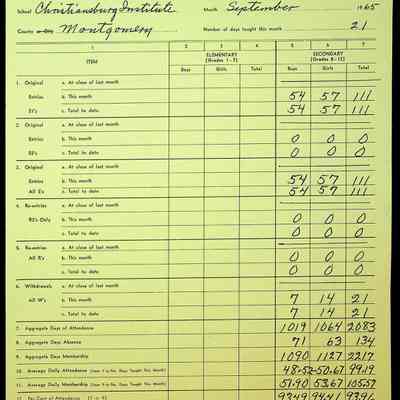 School Christiansburg Institute Month September 1965
County or City Montgomery Number of days taught this month 21
1 2 3 4 5 6 7
ITEM ELEMENTARY (Grades 1-7) SECONDARY (Grades 8-12)
Boys Girls Total Boys Girls Total
1. Original a. At close of last month
Entries b. This month 54 57 111
E1's c. Total to date 54 57 111
2. Original a. At close of last month
Entries b. This month 0 0 0
c. Total to date 0 0 0
3. Original a. At close of last month
Entries b. This month 54 57 111
All E's c. Total to date 54 57 111
4. Re-entries a. At close of last month
R2's Only b. This month 0 0 0
c. Total to date 0 0 0
5. Re-entries a. At close of last month
All R's b. This month 0 0 0
c. Total to date 0 0 0
6. Withdrawals a. At close of last month
All W's b. This month 7 14 21
c. Total to date 7 14 21
7. Aggregate Days of Attendance 1019 1064 2083
8. Aggregate Days Absence 71 63 134
9. Aggregate Days Membership 1090 1127 2217
10. Average Daily Attendance (Item 7 ÷ No. Days Taught This Month) 48.52 50.67 99.19
11. Average Daily Membership (Item 9 ÷ No. Days Taught This Month) 51.90 53.67 105.57
12. Per Cent of Attendance (7 ÷ 9) 93.49 94.41 93.96